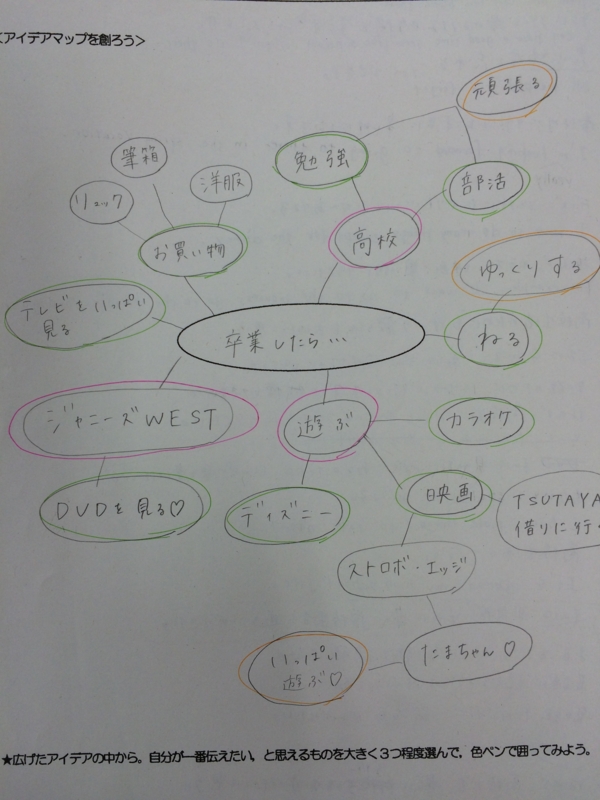 <アイデアマップを創ろう>
頑張る
勉強
部活
筆箱
洋服
リュック
お買い物
高校
ゆっくりする
テレビをいっぱい
見る
卒業したら…
ねる
ジャニーズWEST
遊ぶ
カラオケ
DVDを見る♡
ディズニー
映画
TSUTAYA
借りに行
ストロボ・エッジ
たまちゃん♡
いっぱい
遊ぶ♡
★広げたアイデアの中から。自分が一番伝えたい，と思えるものを大きく3つ程度選んで，色ペンで囲ってみよう。